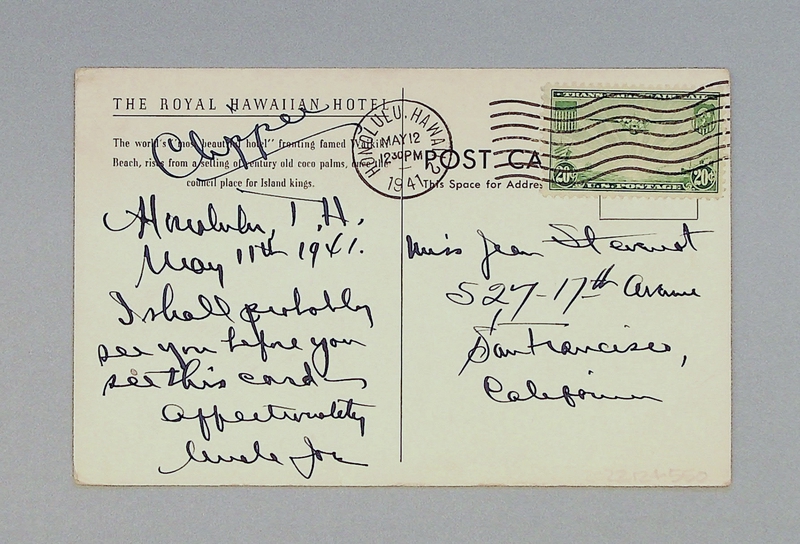 THE ROYAL HAWAIIAN HOTEL
The world's "most beautiful hotel" fronting famed Waikiki
Beach, rises from a setting of century old coco palms, once the
council place for Island kings.
Clipper
Honolulu, T.H.
May 11th 1941.
I shall probably
see you before you
see this card
Affectionately
Uncle Joe
HONOLULU, HAWAII
MAY 12
1230 PM
1941
POST CA
This Space for Addres
TRANS-PACIFIC AIR MAIL
20¢ U.S. POSTAGE 20¢
Miss Jean
527-17th Avenue
San Francisco,
California